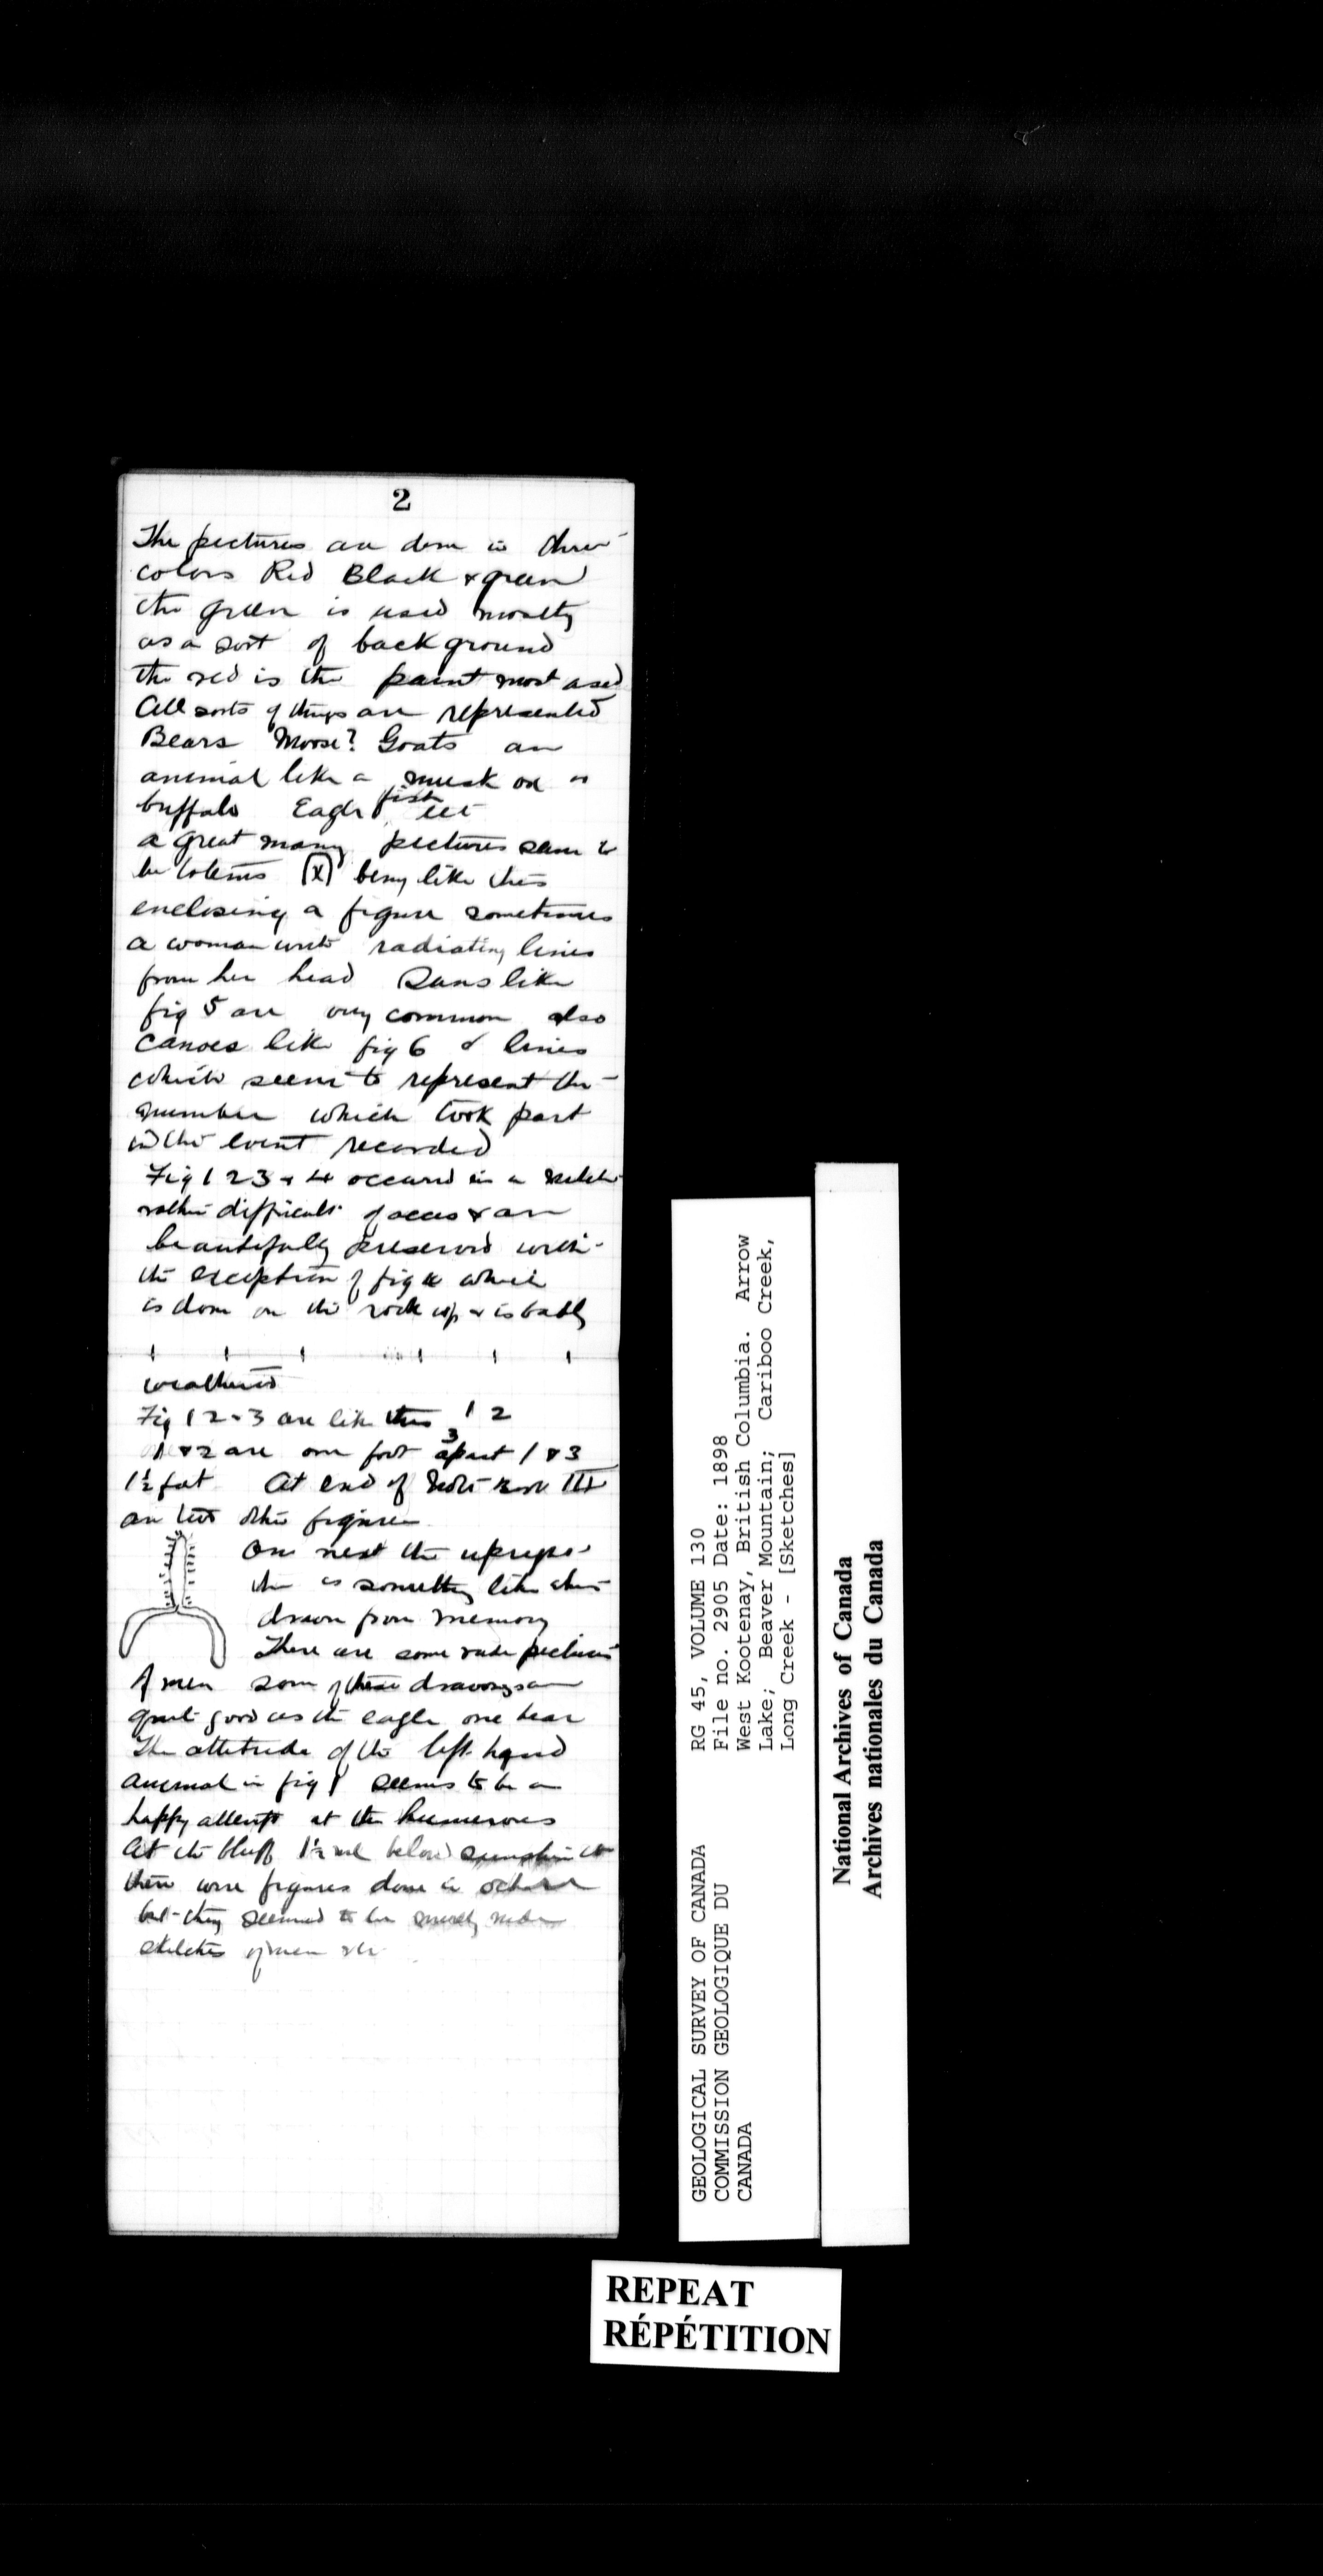 2
The pictures are done in three
colors Red Black & green
the green is used mostly
as a sort of back ground
the red is the paint most used
All sorts of things are represented
Bears Moose? Goats an
animal like a musk ox or
buffalo Eagle fish etc
a great many pictures seem to
be totems (x) being like this
enclosing a figure sometimes
a woman with radiating lines
from her head Suns like
fig 5 are very common also
canoes like fig 6 & lines
which seem to represent the
number which took part
in the event recorded
Fig 1 2 3 & 4 occured in a
rather difficult of acces & are
beautifully preserved with
the exception of fig 4 which
is done on the rock & is badly
weathered
Fig 1 2 & 3 are like this 1 2
3
1 & 2 are one foot apart 1 & 3
1½ feet At end of Note Book III
are two other figures
One next the
the is something like this
drawn from memory
There are some rude pictures
of men some of these drawings are
quite good as the eagle one bear
The attitude of the left hand
animal in fig 1 seems to be a
happy attempt at the humerous
At the bluff 1½ below
there were figures done in ochre
but they seemed to be merely rude
sketches of men etc
RG 45, VOLUME 130
File no. 2905 Date: 1898
West Kootenay, British Columbia. Arrow
Lake; Beaver Mountain; Cariboo Creek,
Long Creek - [Sketches]
GEOLOGICAL SURVEY OF CANADA
COMMISSION GEOLOGIQUE DU
CANADA
National Archives of Canada
Archives nationales du Canada
REPEAT
RÉPÉTITION